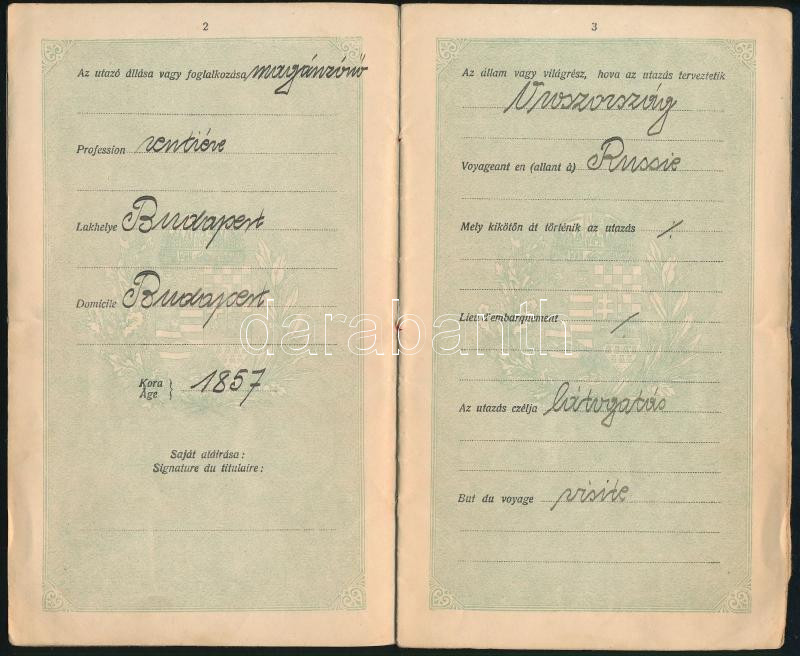 2
Az utazó állása vagy foglalkozása magánzónő
Profession rentière
Lakhelye Budapest
Domicile Budapest
Kora } 1857
Age }
Saját aláírása:
Signature du titulaire:
3
Az állam vagy világrész, hova az utazás terveztetik
Oroszország
Voyageant en (allant à) Russie
Mely kikötőn át történik az utazás /.
Lieu d'embarquement /.
Az utazás czélja látogatás
But du voyage visite
darabanth